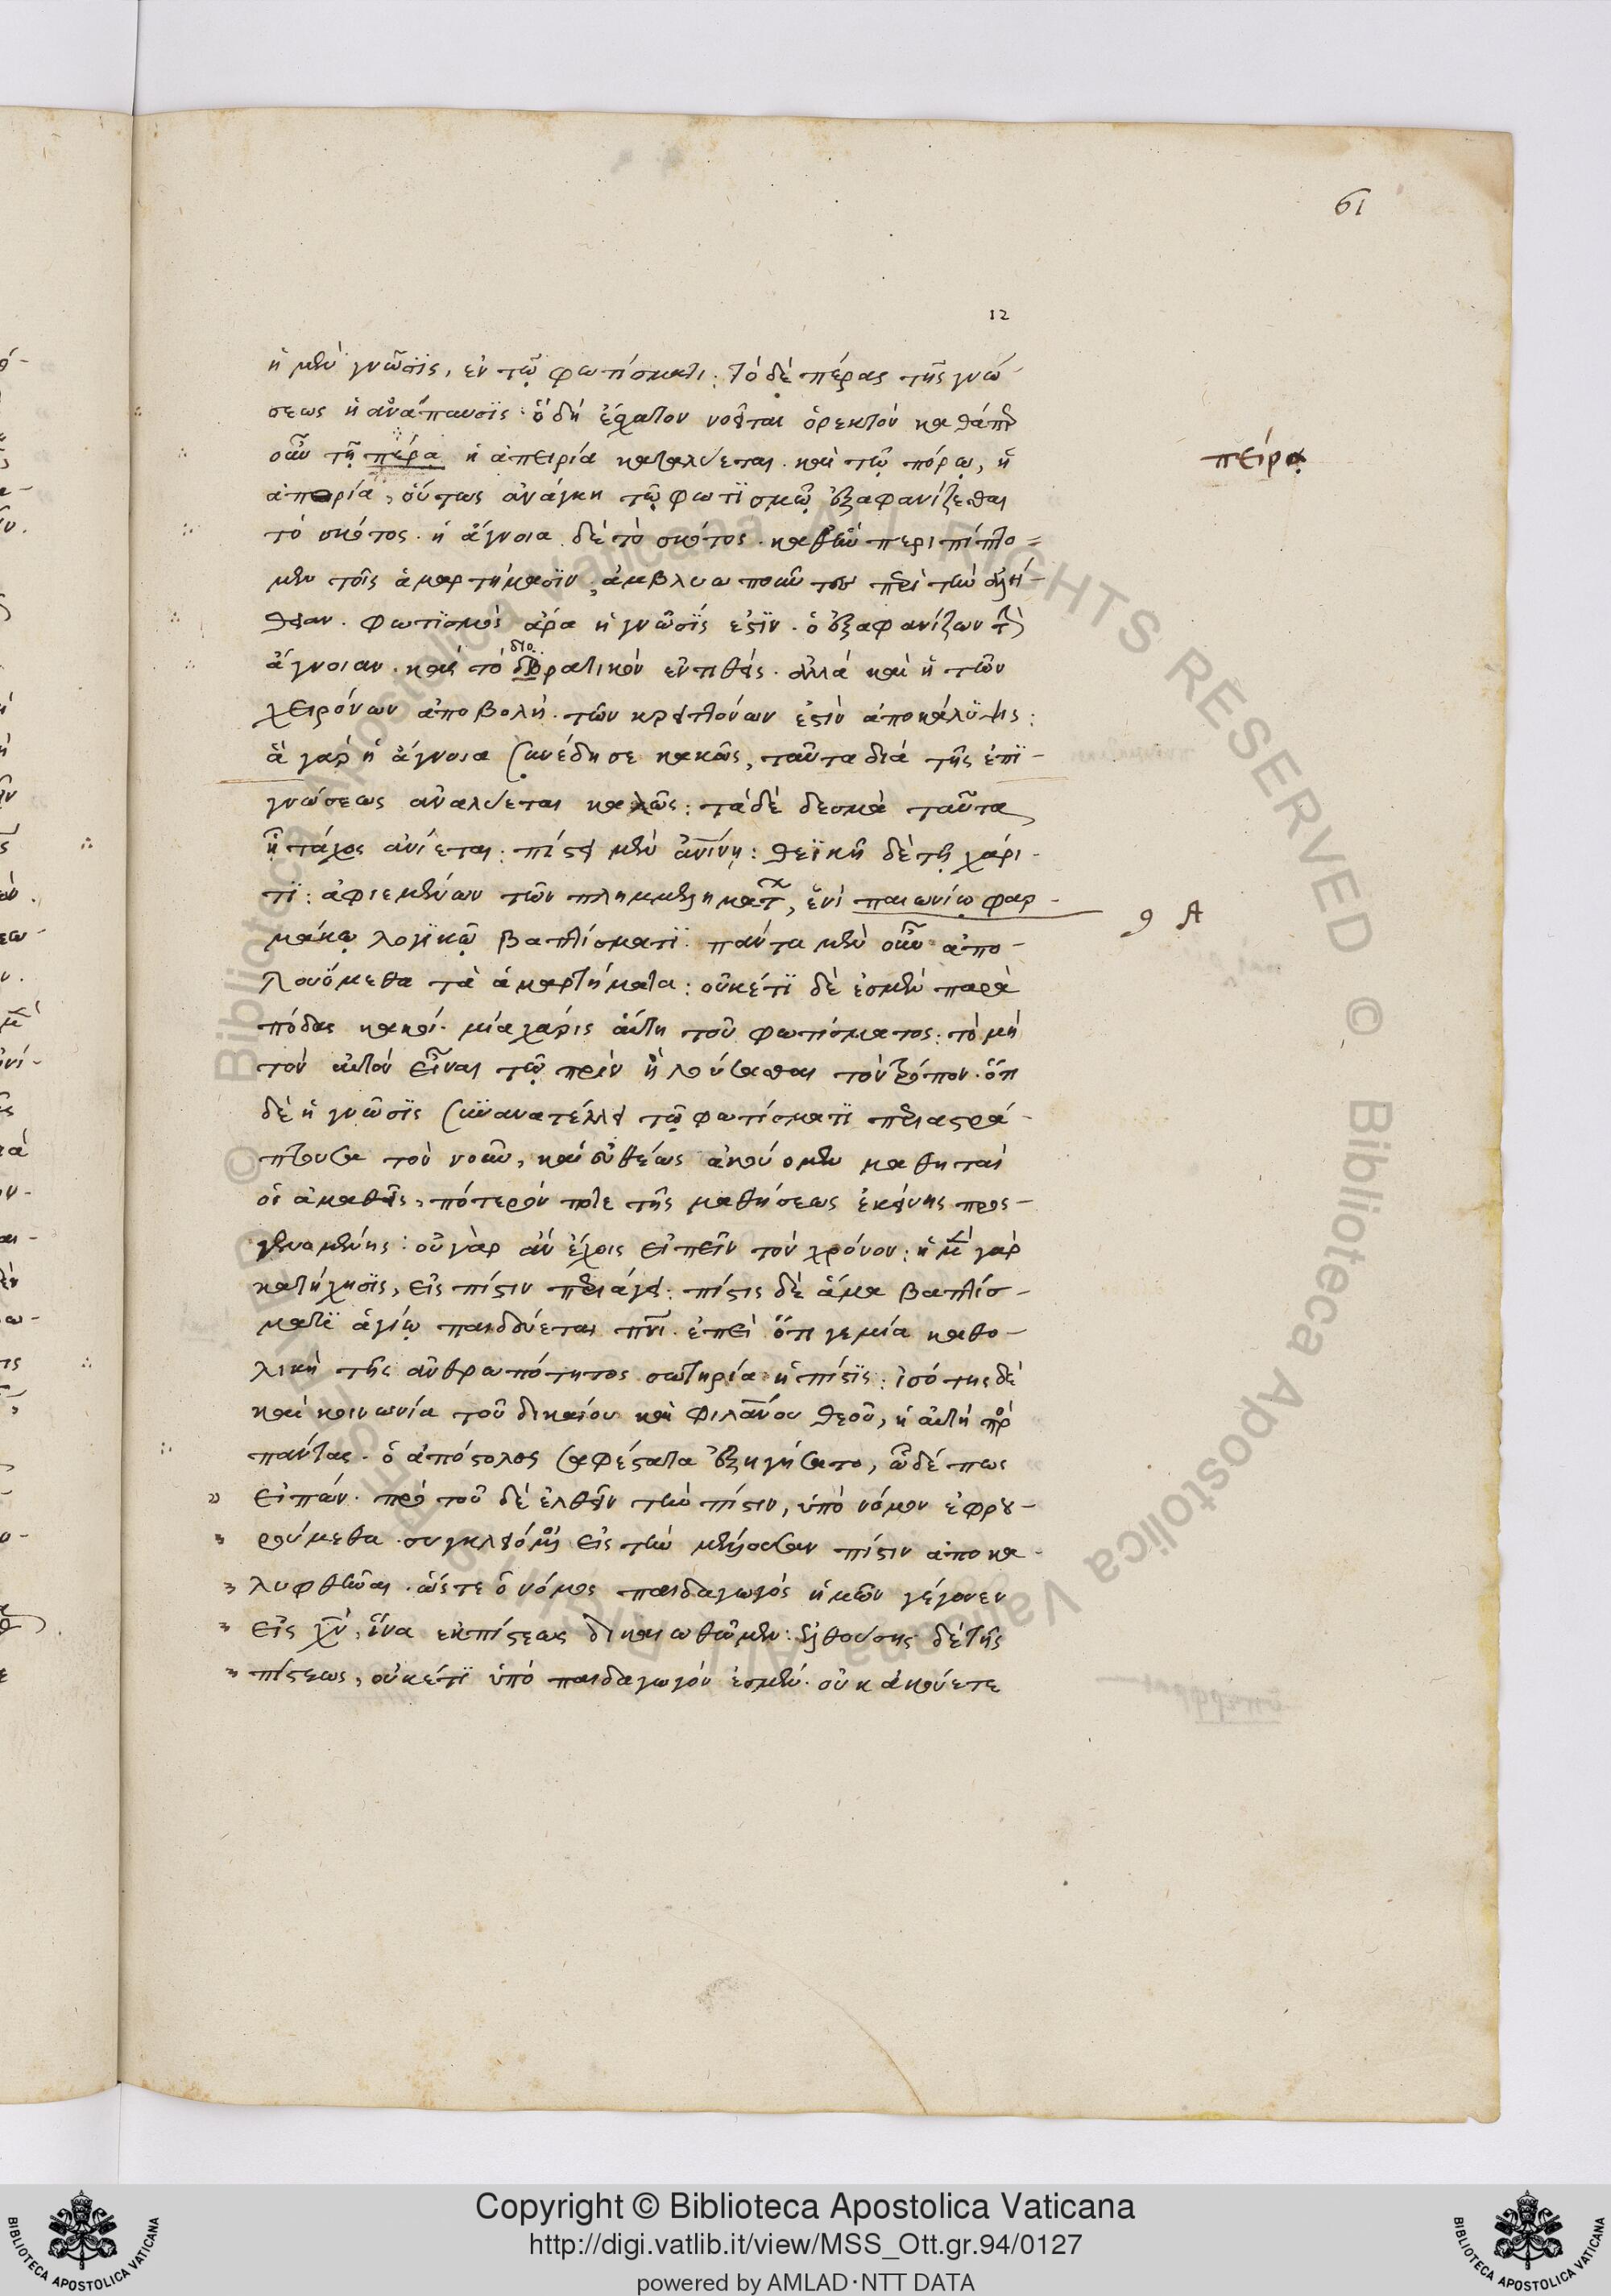 61
12
ἡ μὲν γνῶσϊς, ἐν τῷ φωτίσματι: τὸ δὲ πέρας τῆς γνώ-
σεως ἡ ἀνάπαυσϊς· ὃ δὴ ἔσχατον νοεῖται ὀρεκτόν καθάπερ
οὖν τῇ πέρᾳ ἡ ἀπειρία καταλύεται. καὶ τῷ πόρῳ, ἡ
πείρᾳ
ἀπορία, οὕτως ἀνάγκη τῷ φωτϊσμῷ ἐξαφανίζεσθαι
τὸ σκότος. ἡ ἄγνοια δὲ τὸ σκότος. καθ' ἣν περιπίπτο=
μεν τοῖς ἁμαρτήμασϊν, ἀμβλυωποῦντες περὶ τὴν ἀλή-
θειαν. φωτϊσμὸς ἄρα ἡ γνῶσϊς ἐστϊν. ὁ ἐξαφανίζων τὴν
ἄγνοιαν. καὶ τὸ διορατικὸν ἐντιθείς. ἀλλὰ καὶ ἡ τῶν
διο
χειρόνων ἀποβολὴ. τῶν κρειττόνων ἐστὶν ἀποκάλυψις:
ἃ γὰρ ἡ ἄγνοια συνέδησε κακῶς, ταῦτα διὰ τῆς ἐπϊ-
γνώσεως ἀναλύεται καλῶς: τὰ δὲ δεσμὰ ταῦτα
ᾗ τάχος ἀνίεται: πίστει μὲν ἀνίνῃ: θεϊκῇ δὲ τῇ χάρι-
τϊ: ἀφιεμένων τῶν πλημμελημάτ, ἑνὶ παιωνίῳ φαρ-
μάκῳ λογϊκῷ βαπτίσματϊ. πάντα μὲν οὖν ἀπο-
λουόμεθα τὰ ἁμαρτήματα: οὐκέτϊ δὲ ἐσμὲν παρὰ
πόδας κακοί. μία χάρις αὕτη τοῦ φωτίσματος: τὸ μὴ
τὸν αὐτὸν εἶναι τῷ πρὶν ἢ λούσασθαι τὸν τρόπον. ὅτι
δὲ ἡ γνῶσϊς συϋανατέλλει τῷ φωτίσματϊ περιαστρά-
πτουσα τὸν νοῦν, καὶ εὐθέως ἀκούομεν μαθηταὶ
οἱ ἀμαθεῖς, πότερόν ποτε τῆς μαθήσεως ἐκείνης προς-
γενομένης: οὐ γὰρ ἂν ἔχοις εἰπεῖν τὸν χρόνον: ἡ μὲν γὰρ
κατήχησϊς, εἰς πίστιν περιάγει: πίστις δὲ ἅμα βαπτίσ-
ματϊ ἁγίῳ παιδεύεται πνι. ἐπεὶ ὅτι γε μία καθο-
λικὴ τῆς ἀνθρωπότητος σωτηρία ἡ πίστϊς: ἰσότης δὲ
καὶ κοινωνία τοῦ δικαίου καὶ φιλανου θεοῦ, ἡ αὐτὴ πρὸς
πάντας. ὁ ἀπόστολος σαφέστατα ἐξηγήσατο, ὧδέ πως
εἰπών. πρὸ τοῦ δὲ ἐλθεῖν τὴν πίστιν, ὑπὸ νόμον ἐφρου-
ρούμεθα. συγκλειόμενοι εἰς τὴν μέλλουσαν πίστιν ἀποκα-
λυφθῆναι. ὥστε ὁ νόμος παιδαγωγὸς ἡμῶν γέγονεν
εἰς χν, ἵνα ἐκ πίστεως δικαιωθῶμεν: ἐλθούσης δὲ τῆς
πίστεως, οὐκέτϊ ὑπὸ παιδαγωγόν ἐσμέν. οὐκ ἀκούετε
Copyright © Biblioteca Apostolica Vaticana
http://digi.vatlib.it/view/MSS_Ott.gr.94/0127
powered by AMLAD·NTT DATA